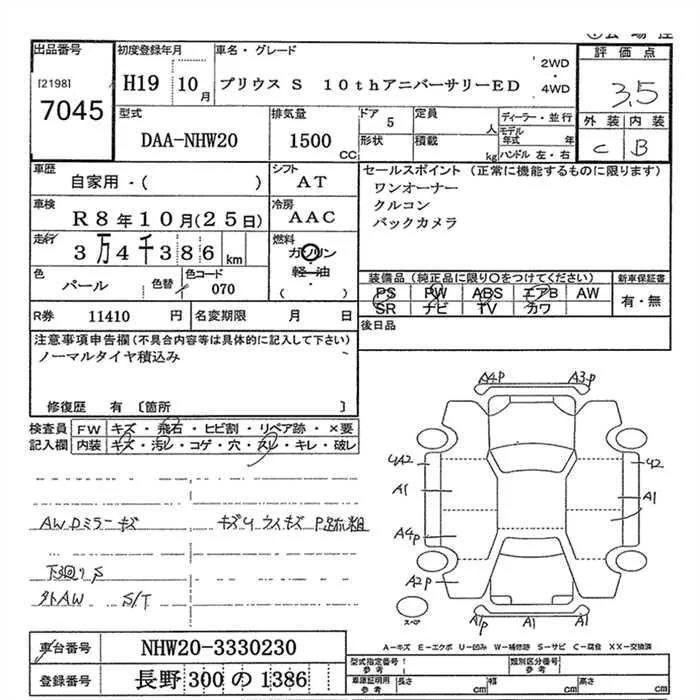 出品番号
[2198]
7045
初度登録年月
H19 10月
車名・グレード
プリウス S 10thアニバーサリーED
2WD
4WD
評価点
3.5
外装 内装
C B
型式
DAA-NHW20
排気量
1500
CC
ドア
5
形状
定員
人
積載
kg
ディーラー・並行
モデル年式 年
ハンドル 左・右
車歴
自家用・( )
シフト
AT
車検
R8年10月(25日)
冷房
AAC
走行
3万4千386km
燃料
ガソリン
軽・油
( ・ )
色
パール
色替
色コード
070
セールスポイント (正常に機能するものに限ります)
ワンオーナー
クルコン
バックカメラ
装備品(純正品に限り○をつけてください)
PS PW ABS エアB AW
SR ナビ TV カワ
新車保証書
有・無
R券 11410 円
名変期限 月 日
後日品
注意事項申告欄(不具合内容等は具体的に記入して下さい)
ノーマルタイヤ積込み
修復歴 有 〔箇所 〕
検査員 FW キズ・飛石・ヒビ割・リペア跡・×要
記入欄 内装 キズ・汚レ・コゲ・穴・スレ・キレ・破レ
AWDミラーキズ
下廻りS
外AW S/T
A4P A3P
A1
A4P
A2P
A1P
A1
U2
A1
スペア
A-キズ E-エクボ U-凹み W-補修跡 S-サビ C-腐食 XX-交換済
車台番号 NHW20-3330230
登録番号 長野 300 の 1386
型式指定番号
参考
類別区分番号
参考
車庫証明用
参考
長さ cm
幅 cm
高さ cm